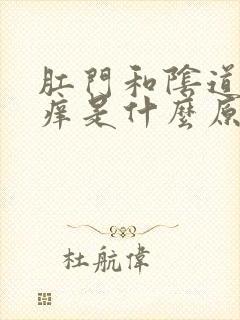 肛門和陰道
痒是什麼原
杜航偉